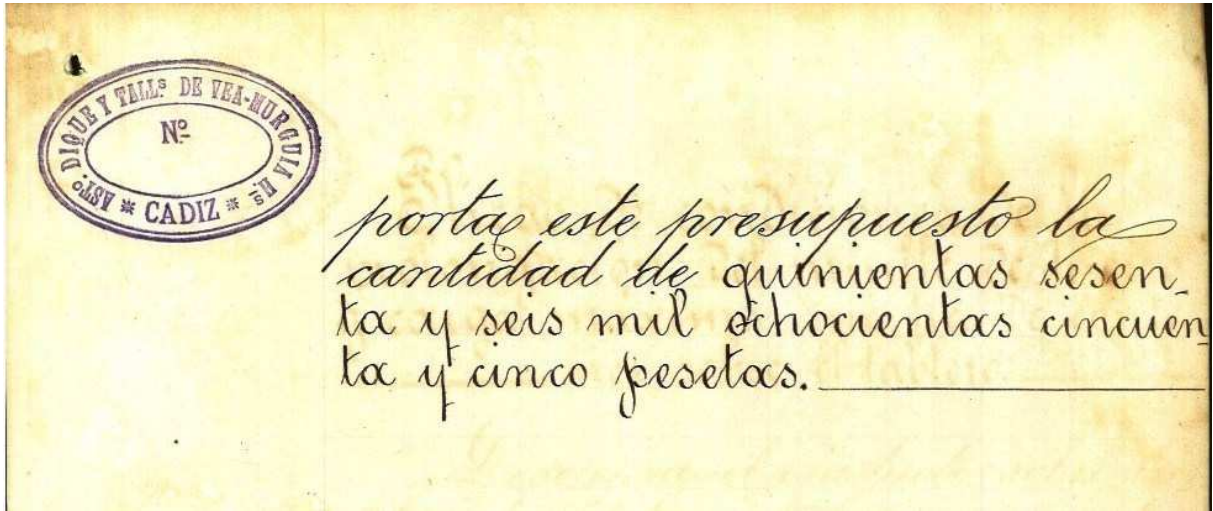 ASTº. DIQUE Y TALLˢ DE VEA-MURGUIA Hˢ
Nº
* CADIZ *
porta este presupuesto la
cantidad de quinientas sesen-
ta y seis mil ochocientas cincuen
ta y cinco pesetas.